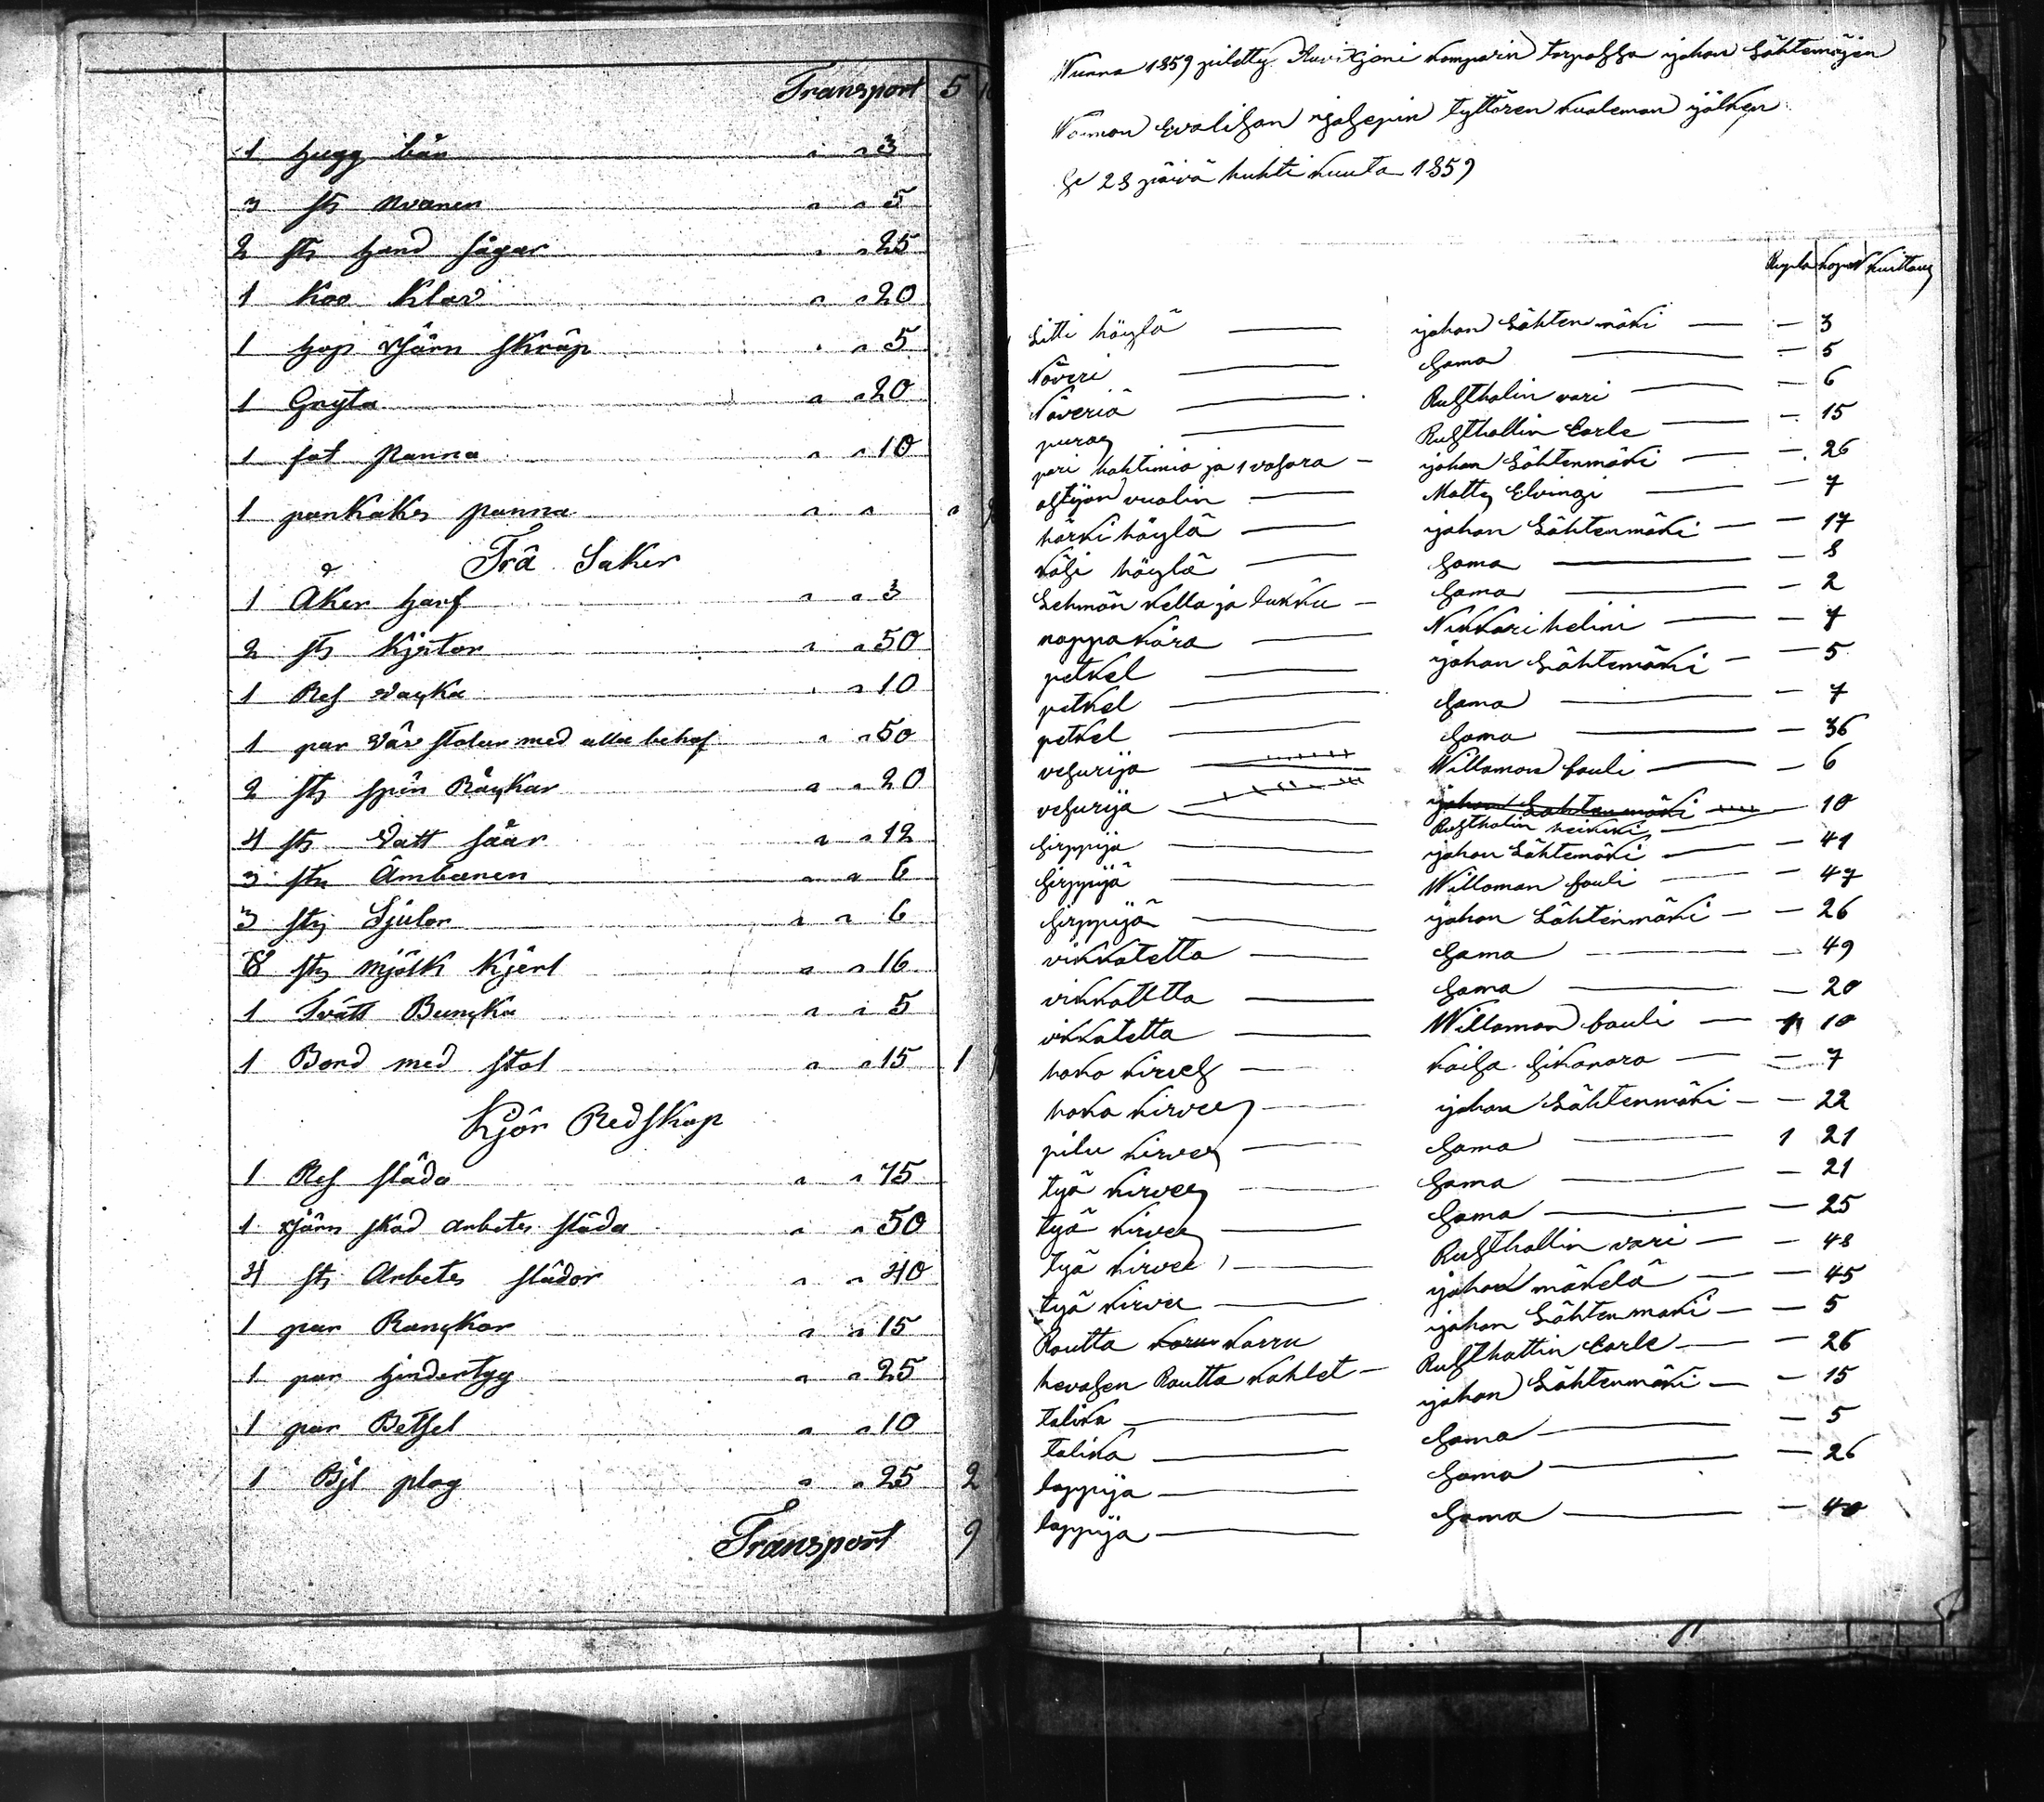 Transport 5
1 hugg bår " " 3
3 st Nvanen " " 5
2 st hand sågar " " 25
1 Koo Klav " " 20
1 hop Jârn skrâp " " 5
1 Gryta " " 20
1 fat panna " " 10
1 pankakes panna " "
Trä Saker
1 Åker harf " " 3
2 st Kjätor " " 50
1 Res Vagka " " 10
1 par Väv stolar med alla behof " " 50
2 st spin Råckar " " 20
4 st Vatt såar " " 12
3 st Âmbaren " " 6
3 st Sjulor " " 6
8 st mjölk Kjerl " " 16
1 Tvätt Bunka " " 5
1 Bord med stol " " 15 1
Kjör Redskap
1 Res slâda " " 75
1 Jârn skod arbetes slâda " " 50
4 st Arbetes slâdor " " 40
1 par Rangkor " " 15
1 par hindertyg " " 25
1 par Betsel " " 10
1 Bjl plog " " 25 2
Transport 9
Wunna 1859 piletty Auvikzjoni komparin torpassa johan Lähtemäjen
Waimon Evalisan josepin tyttären kualeman jälken
se 28 päivä huhti kuuta 1859
Rupla kopek kuittaus
Litti höylä — johan Lähtenmäki — — 3
Näveri — Sama — — 5
Näveriä — Rusthalin vari — — 6
puras — Rusthallin Carle — — 15
pari hohtimia ja 1 vasara — johan Lähtenmäki — — 26
astijan vualin — Matty Elvingi — 7
härki höylä — johan Lähtenmäki — — 17
käsi höylä — Sama — — 8
Lehmän kella ja lukku — Sama — — 2
nappakåra — Nikkari helini — — 7
petkel — johan Lähtemäki — — 5
petkel — Sama — — 7
petkel — Sama — — 36
vesurija — Willaman fouli — — 6
vesurija — johan Lahtenmäki — 10
Rusthalin heikki
sirppijä — johan Lähtemäki — — 41
sirppijä — Willaman fouli — — 47
sirppijä — johan Lähtenmäki — — 26
vikkatetta — Sama — — 49
vikkatetta — Sama — — 20
vikkatetta — Willaman fouli — 1 10
hako kirves — kaisa sikanara — — 7
hako kirves — johan Lähtenmäki — — 22
pilu kirves — Sama — 1 21
työ kirves — Sama — — 21
työ kirves — Sama — — 25
työ kirves — Rusthallin vari — — 48
työ kirves — johan mäkelä — — 45
Rautta karu karru johan Lähtenmäki — — 5
hevosen Rautta kahlet — Rusthattin Carle — — 26
talika — johan Lähtenmäki — — 15
talika — Sama — — 5
lappija — Sama — — 26
lappija — Sama — — 40